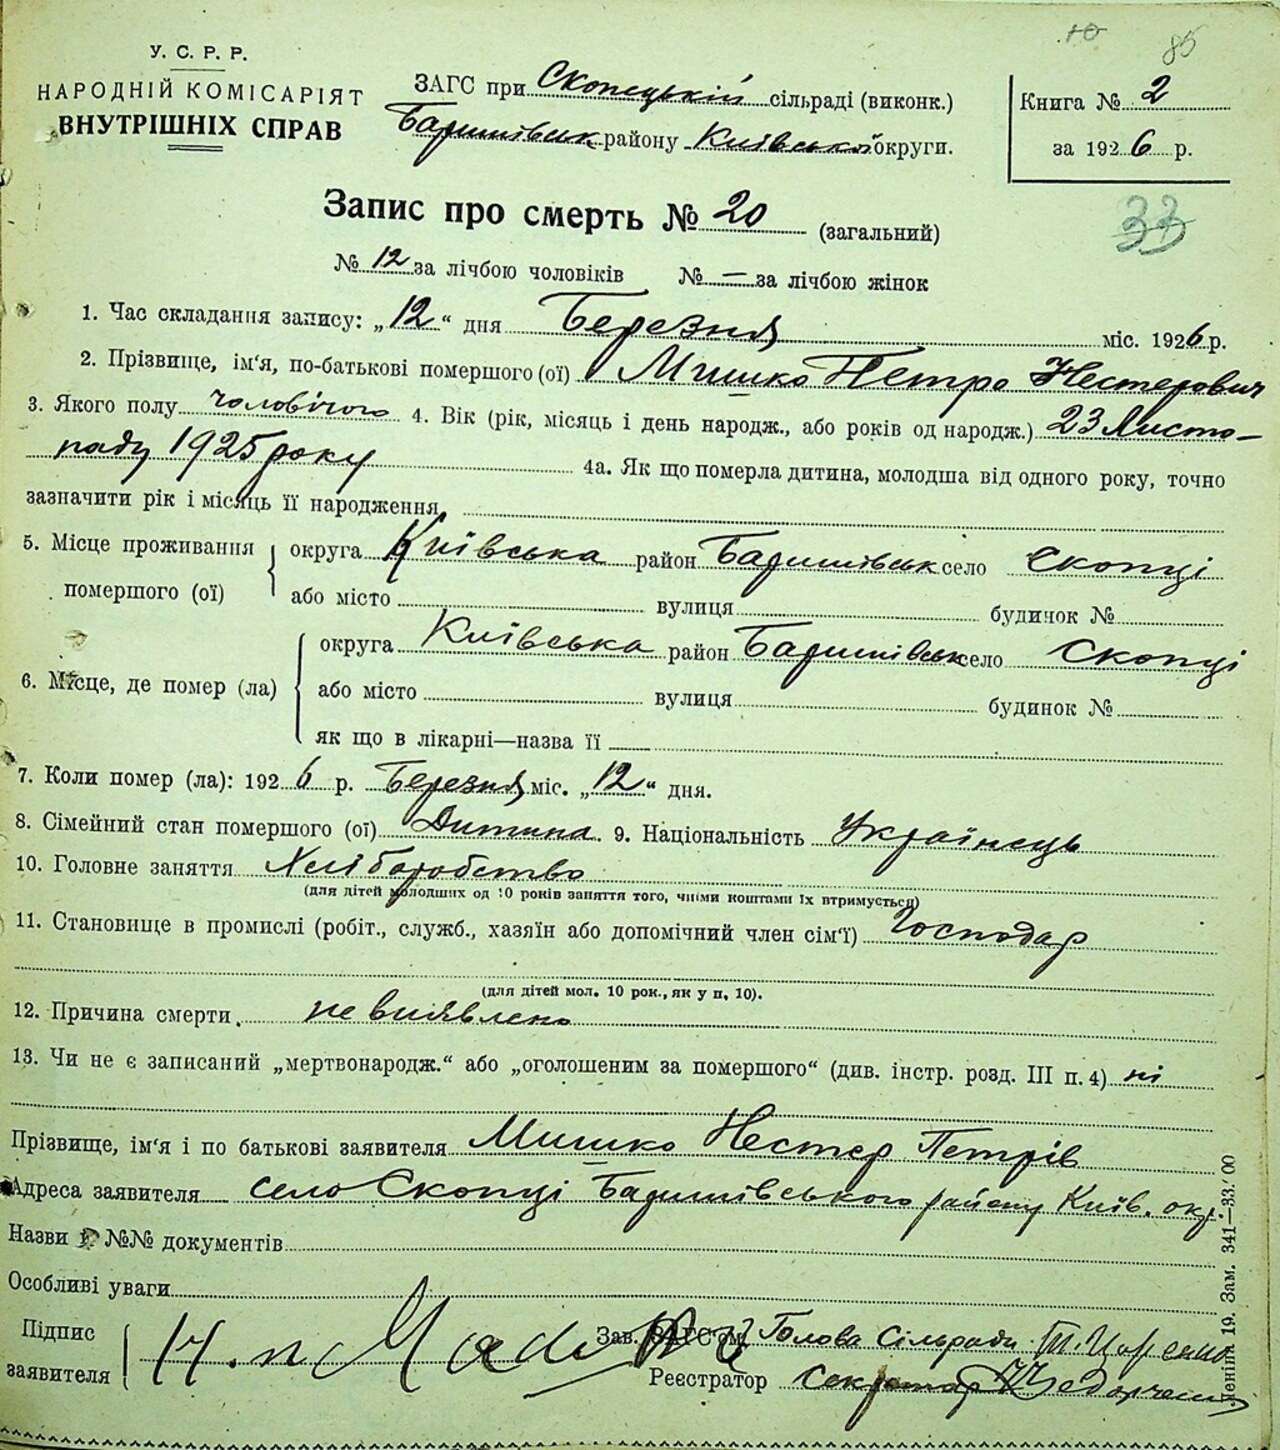 85
У. С. Р. Р.
НАРОДНІЙ КОМІСАРІЯТ
ВНУТРІШНІХ СПРАВ
ЗАГС при Скопецькій сільраді (виконк.)
Баришівськ району Київської округи.
Книга № 2
за 1926 р.
Запис про смерть № 20 (загальний)
33
№ 12 за лічбою чоловіків № — за лічбою жінок
1. Час складання запису: „12“ дня Березня міс. 1926 р.
2. Прізвище, ім'я, по-батькові помершого (ої) Мишко Петро Нестерович
3. Якого полу чоловічого 4. Вік (рік, місяць і день народж., або років од народж.) 23 Листо-
паду 1925 року 4а. Як що померла дитина, молодша від одного року, точно
зазначити рік і місяць її народження
5. Місце проживання помершого (ої) округа Київська район Баришівськ село Скопці
або місто вулиця будинок №
6. Місце, де помер (ла) округа Київська район Баришівськ село Скопці
або місто вулиця будинок №
як що в лікарні—назва її
7. Коли помер (ла): 1926 р. Березня міс. „12“ дня.
8. Сімейний стан помершого (ої) Дитина. 9. Національність Українець
10. Головне заняття Хліборобство
(для дітей молодших од 10 років заняття того, чиїми коштами їх втримується)
11. Становище в промислі (робіт., служб., хазяїн або допомічний член сім'ї) Господар
(для дітей мол. 10 рок., як у п. 10).
12. Причина смерти. не виявлено
13. Чи не є записаний „мертвонародж.“ або „оголошеним за помершого“ (див. інстр. розд. III п. 4) ні
Прізвище, ім'я і по батькові заявителя Мишко Нестер Петрів
Адреса заявителя село Скопці Баришівського району Київ. окр.
Назви і №№ документів
Особливі уваги
Підпис заявителя Н. п
Зав. ЗАГС'ом Голова Сільради
Реєстратор Секретар
19. Зам. 341—33.'00